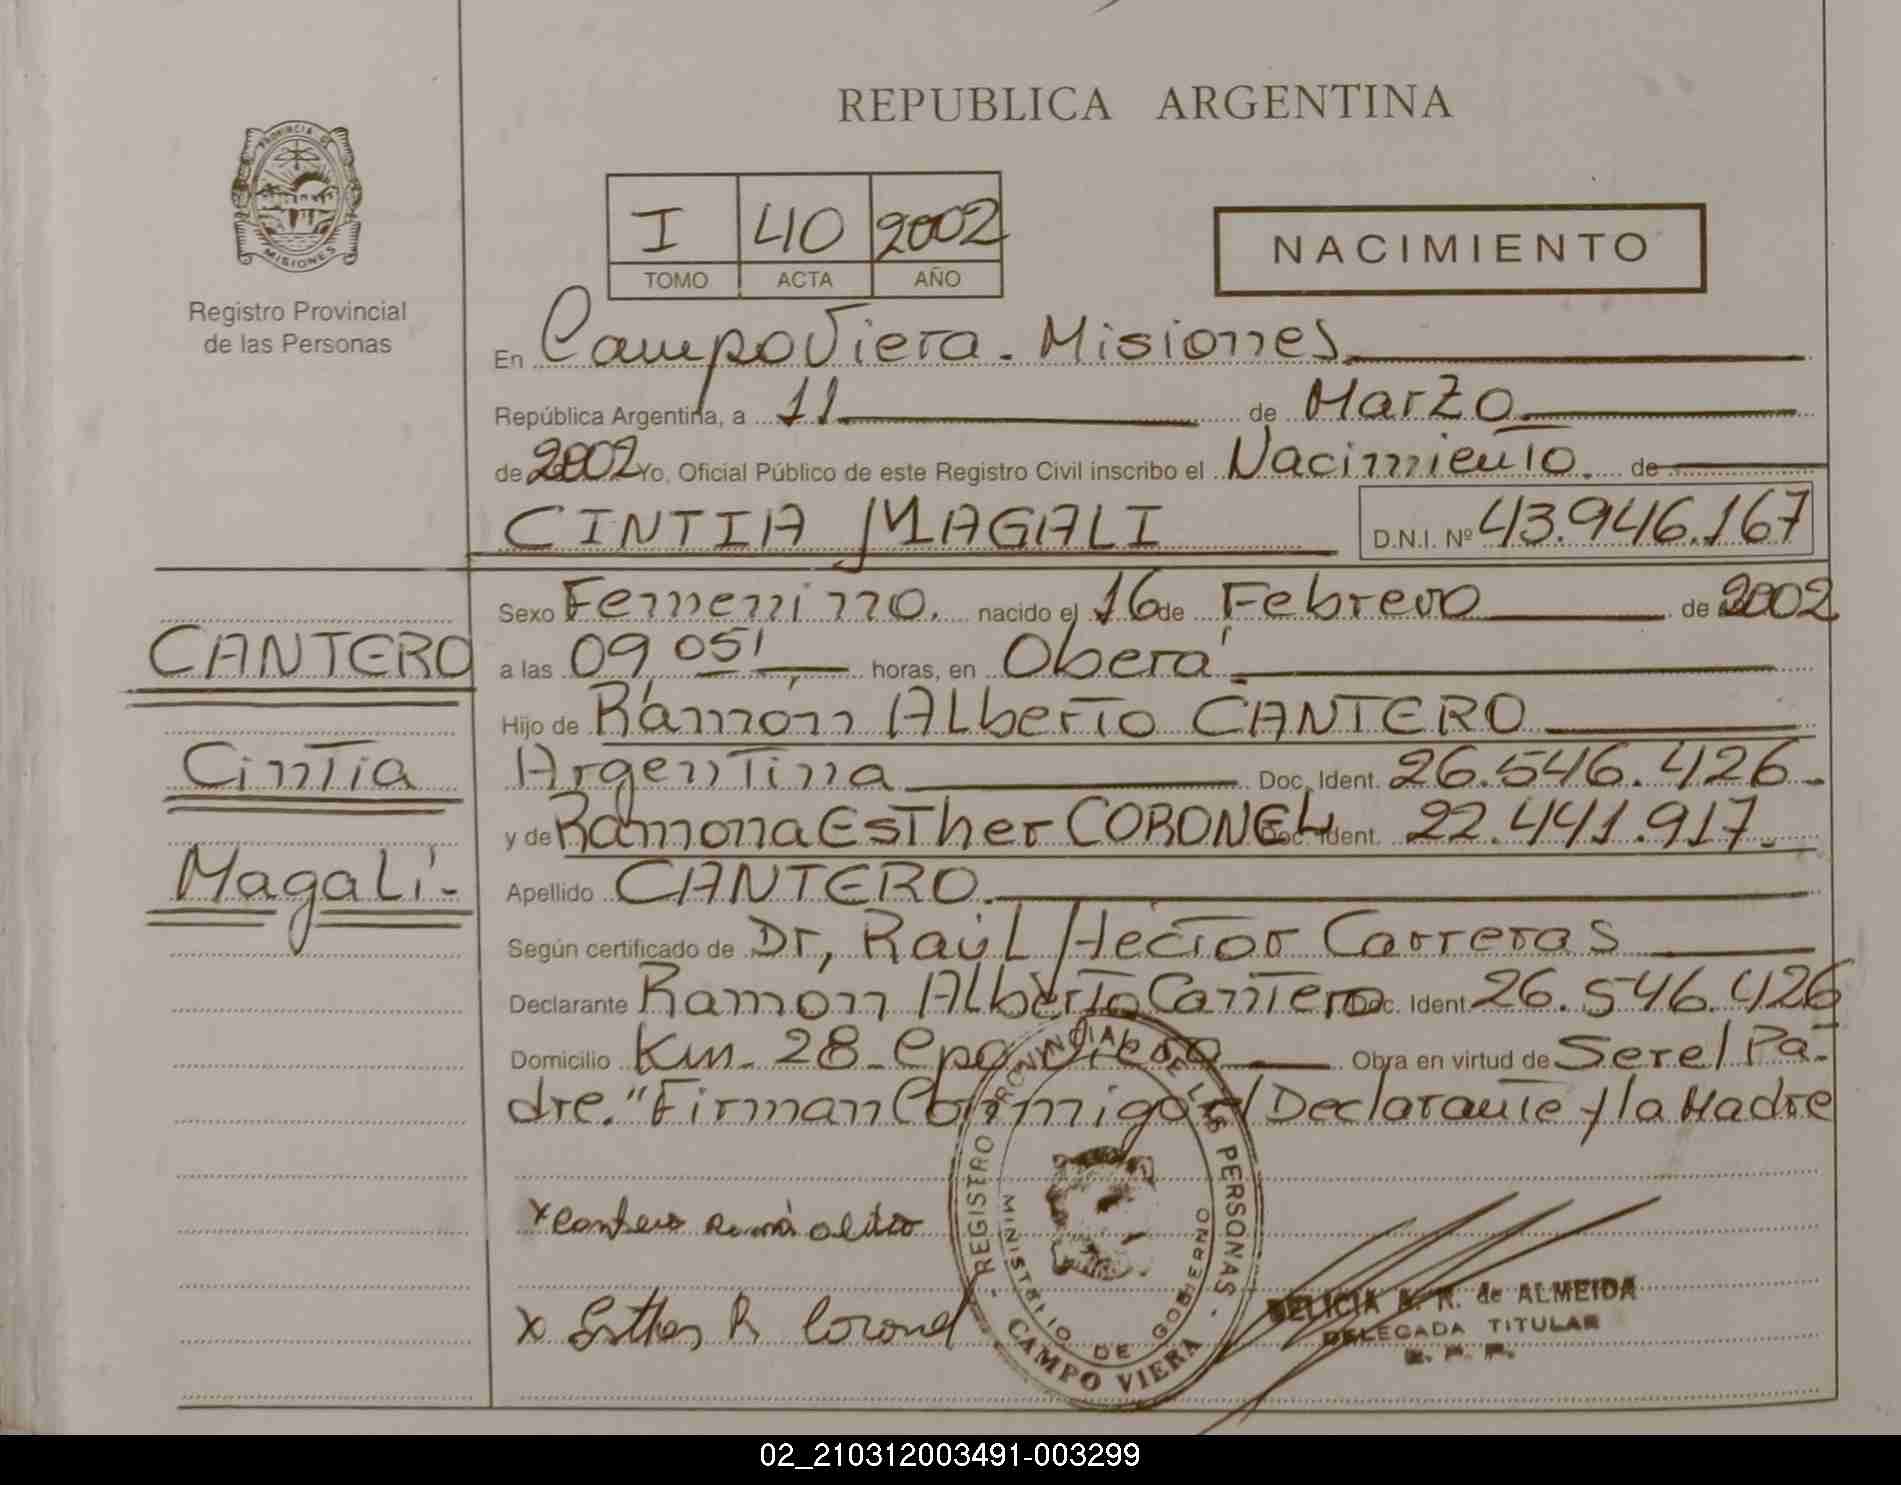 REPUBLICA ARGENTINA
PROVINCIA DE
MISIONES
Registro Provincial
de las Personas
I 40 2002
TOMO ACTA AÑO
NACIMIENTO
En Campo Viera - Misiones
República Argentina, a 11 de Marzo
de 2002 Yo, Oficial Público de este Registro Civil inscribo el Nacimiento. de
CINTIA MAGALI D.N.I. Nº 43.946.167
Sexo Femenino. nacido el 16 de Febrero de 2002
a las 09,05' horas, en Oberá
Hijo de Ramón Alberto CANTERO
Argentina Doc. Ident. 26.546.426-
y de Ramona Esther CORONEL Doc. Ident. 22.441.917.
Apellido CANTERO.
Según certificado de Dr, Raúl Héctor Carreras
Declarante Ramón Alberto Cantero Doc. Ident. 26.546.426
Domicilio Km- 28- Cpo Viera Obra en virtud de Ser el Pa-
dre." Firman Conmigo el Declarante y la Madre
CANTERO
Cintia
Magalí-
x Cantero Ramón
x Esther R Coronel
- REGISTRO PROVINCIAL DE LAS PERSONAS -
MINISTERIO DE GOBIERNO
CAMPO VIERA
DELICIA A. R. de ALMEIDA
DELEGADA TITULAR
R. P. P.
02_210312003491-003299